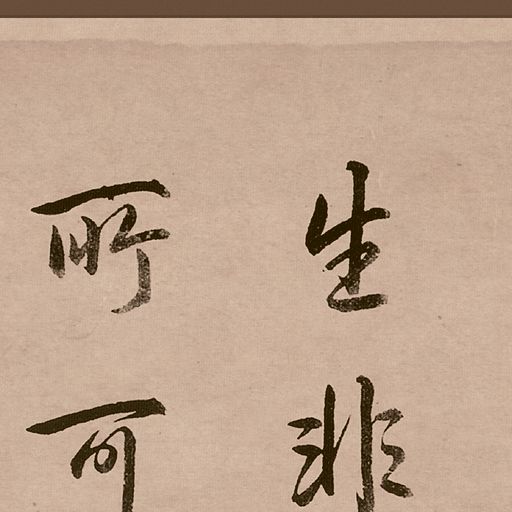 生非
所可